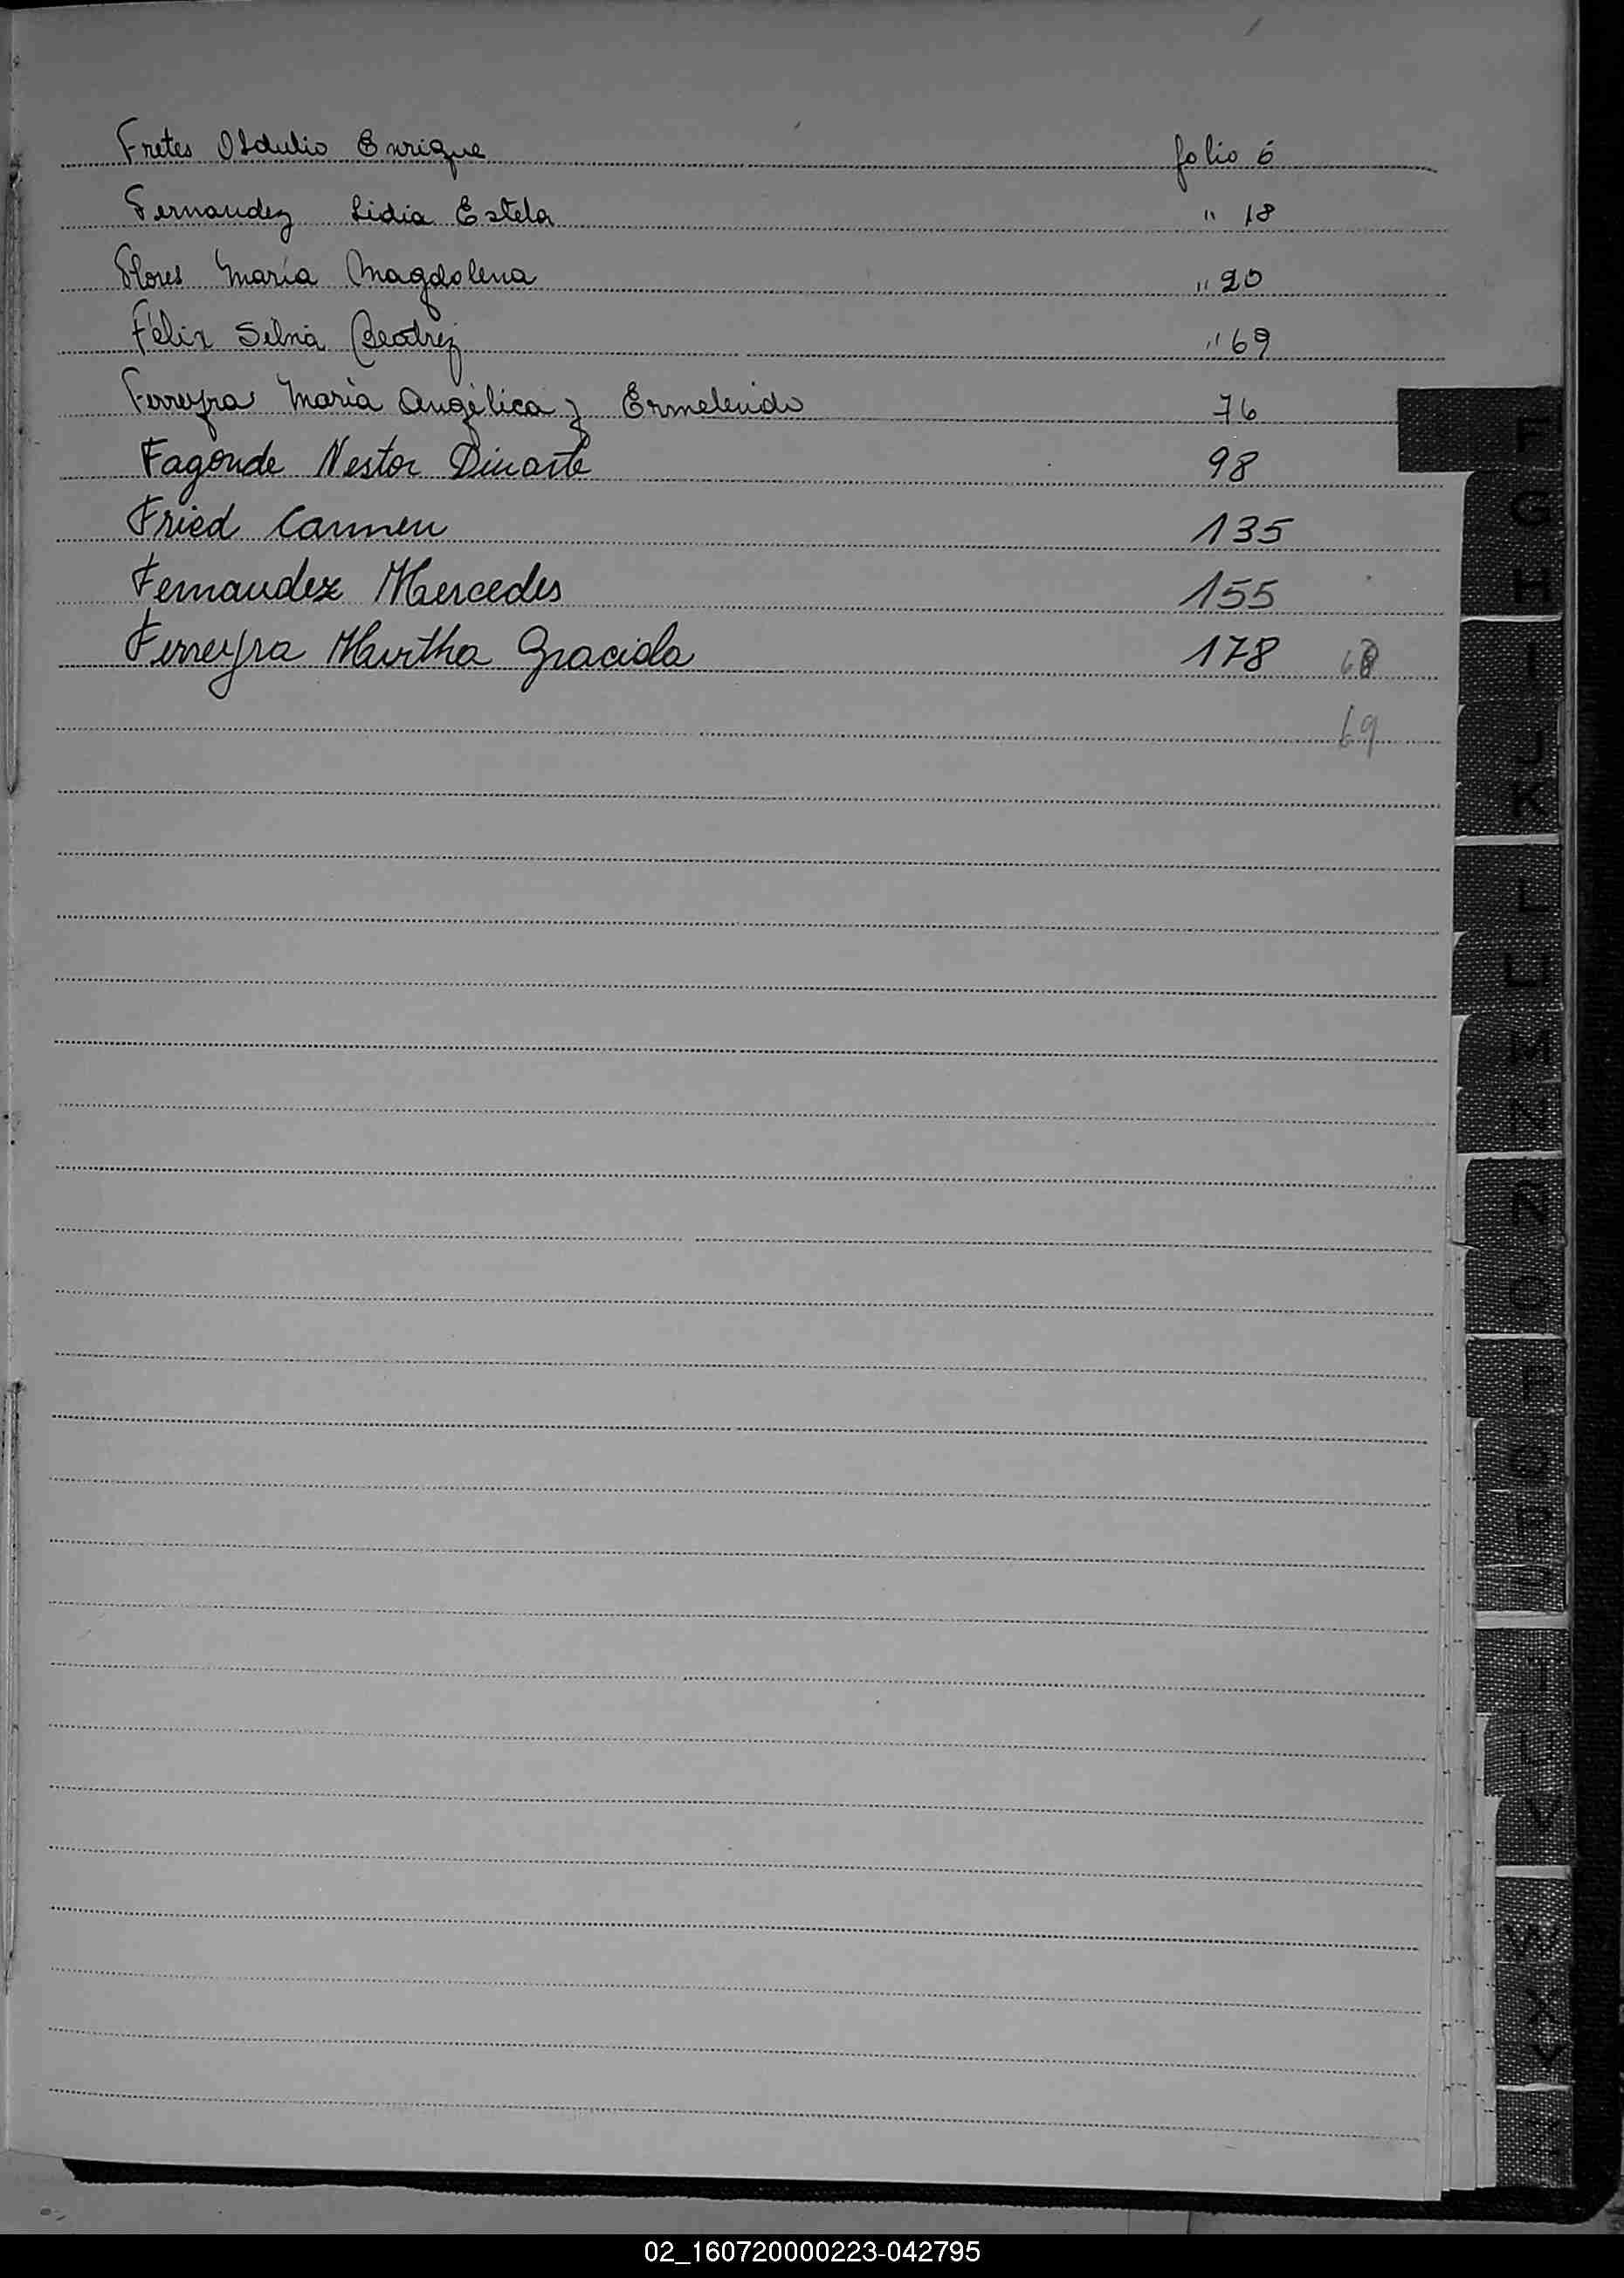 Fretes Obdulio Enrique folio 6
Fernandez Lidia Estela " 18
Flores María Magdalena " 20
Félix Silvia Beatriz " 69
Ferreyra María Angélica y Ermelindo 76
Fagonde Nestor Dinarte 98
Fried Carmen 135
Fernandez Mercedes 155
Ferreyra Mirtha Graciela 178 68
69
F
G
H
I
J
K
L
LL
M
N
Ñ
O
P
Q
R
S
T
U
V
W
X
Y
Z
02_160720000223-042795